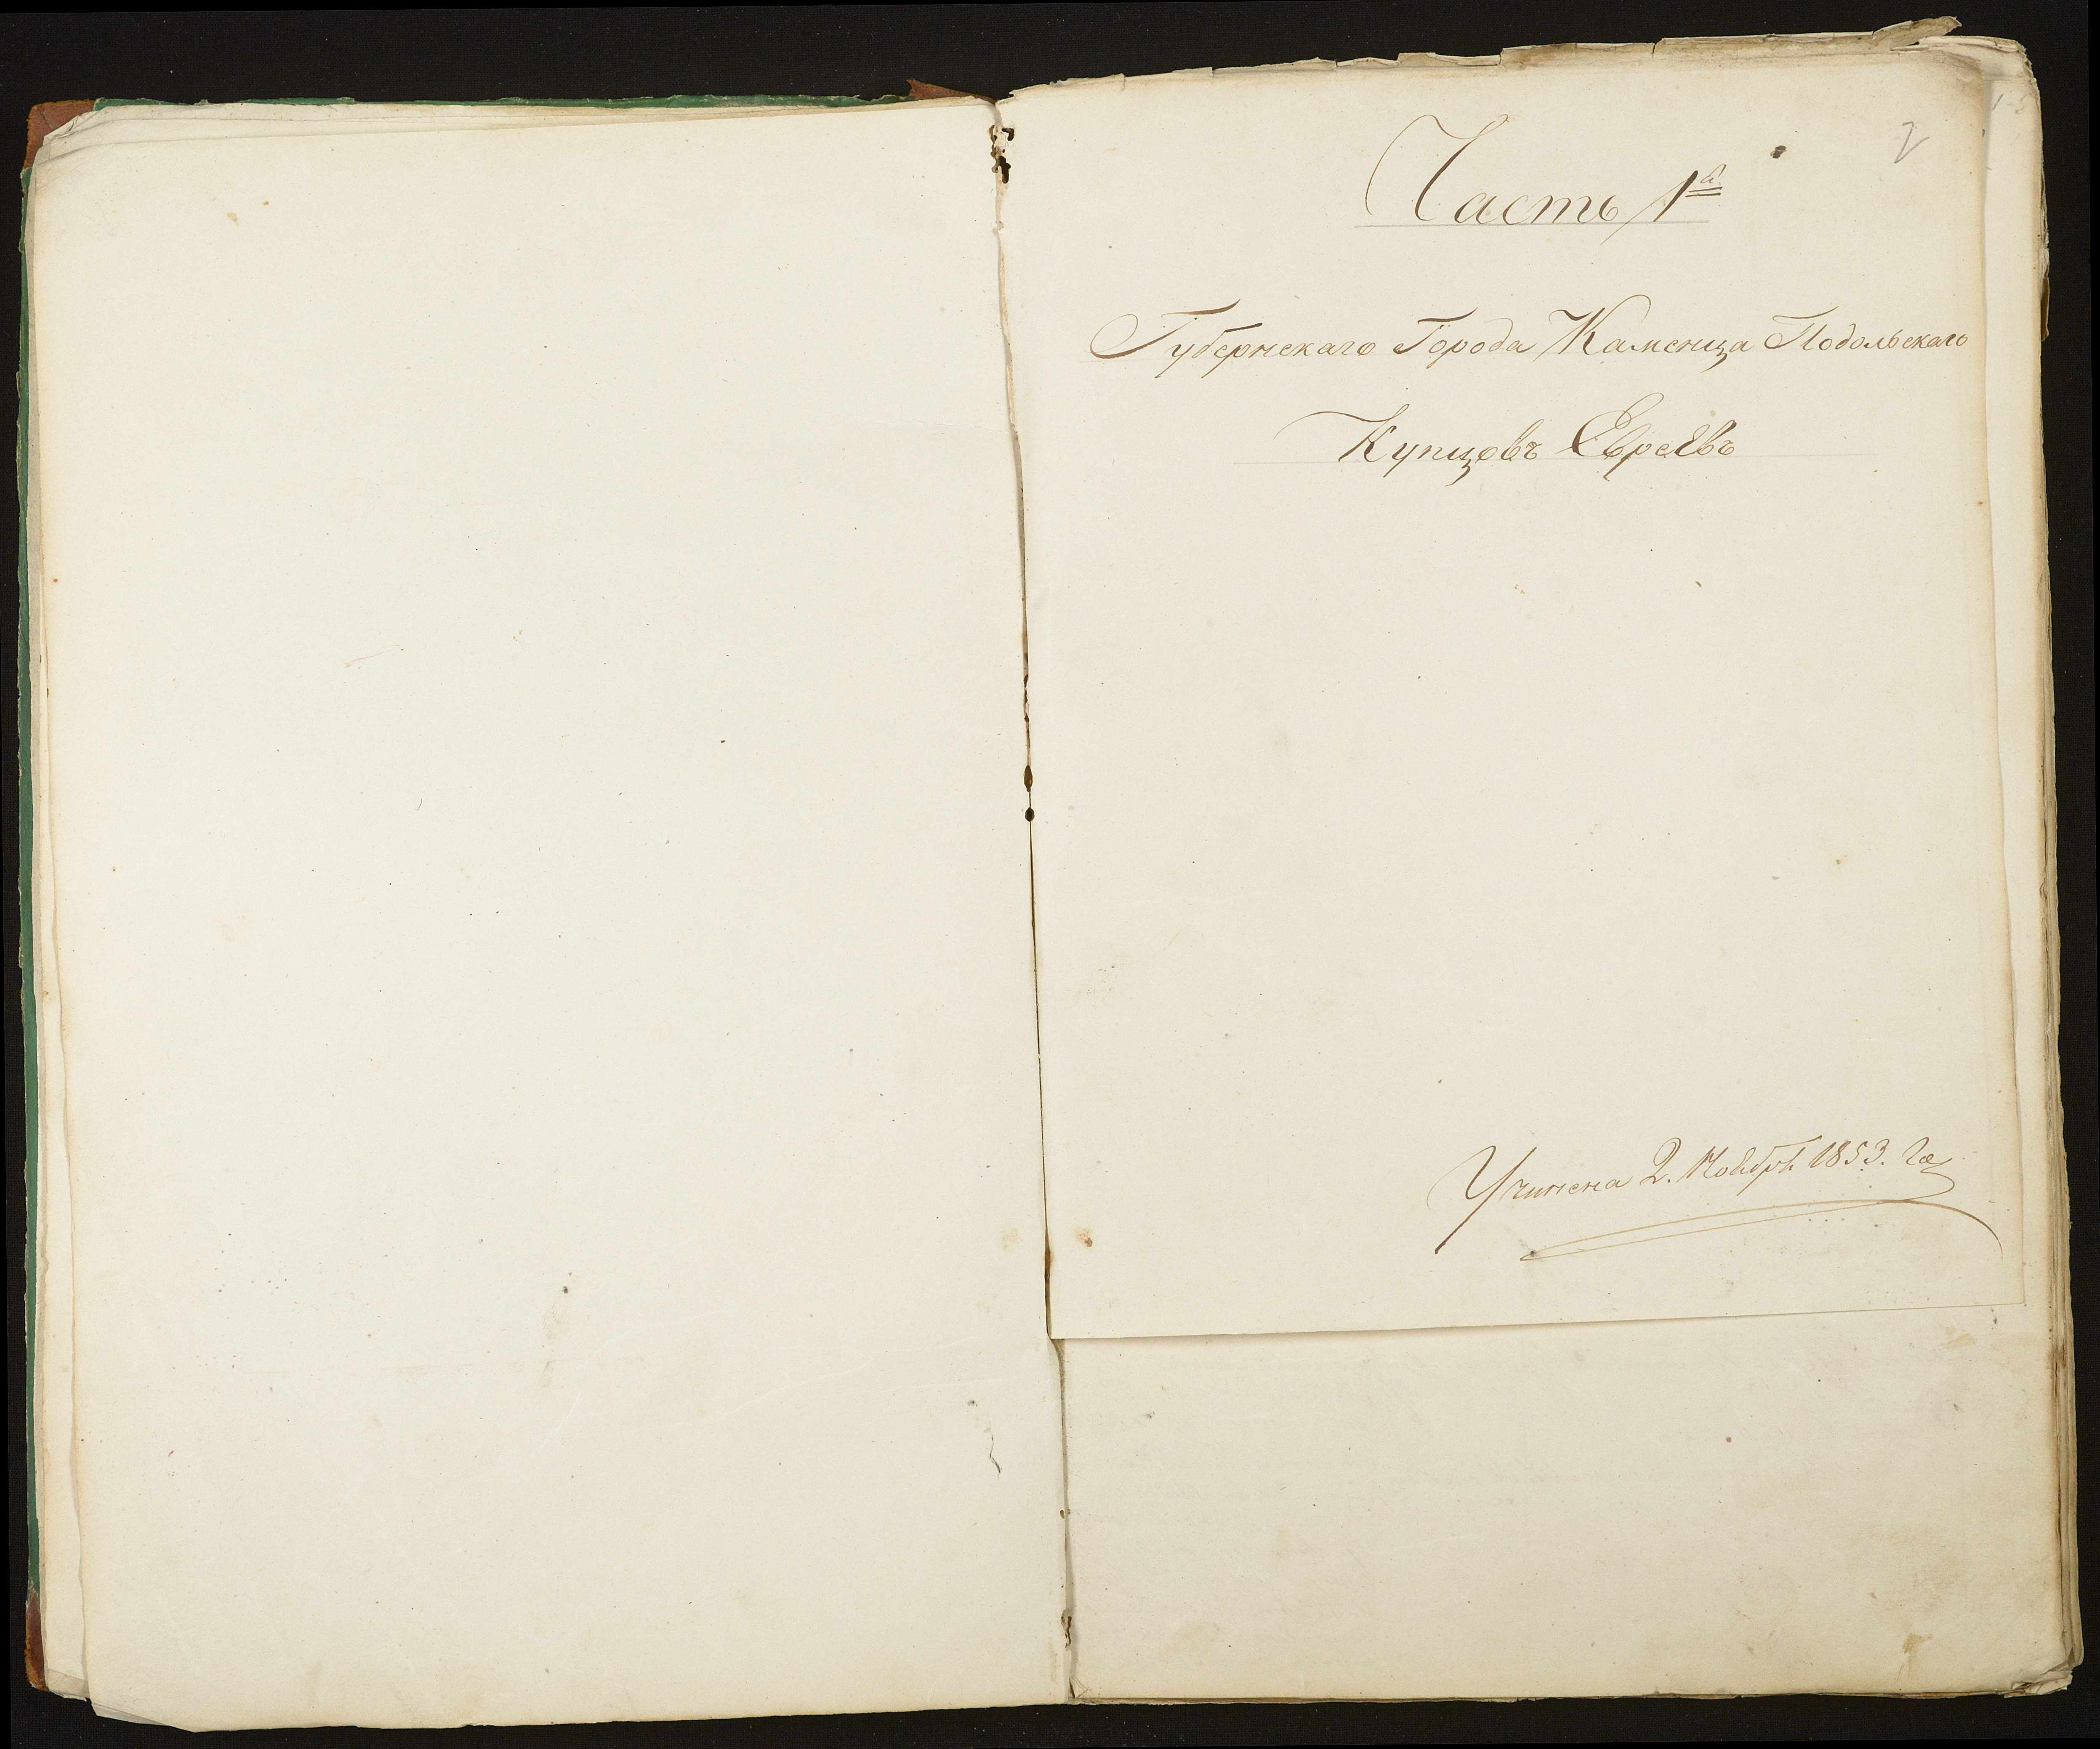 2
Часть 1ª
Губернскаго Города Каменца Подольскаго
Купцовъ Евреѣвъ
Учинена 2. Ноября 1853. Го